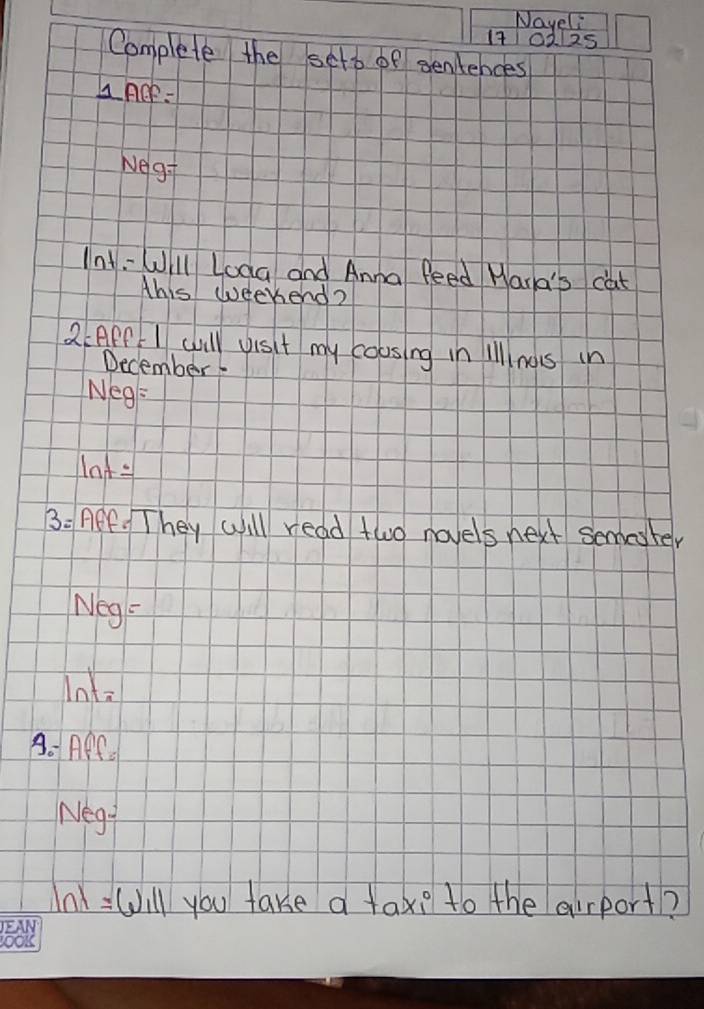 Nayeli
17 02 25
Complete the sets of sentences
1 Aff=
Neg=
Int.- Will Loaa and Anna feed Maria's cat
this weekend?
2.- Aff= I will visit my cousing in Illinois in
December.
Neg=
Int=
3= Aff= They will read two novels next semester
Neg=
Int=
4.- Aff=
Neg=
Int= Will you take a taxi to the airport?
JEAN
BOOK